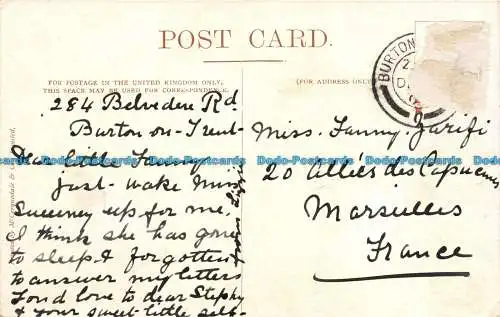 POST CARD.
FOR POSTAGE IN THE UNITED KINGDOM ONLY,
THIS SPACE MAY BE USED FOR CORRESPONDENCE.
(FOR ADDRESS ONLY
284 Belvedere Rd
Burton-on-Trent
Dear little Fanny
Just wake Miss
Sweeney up for me,
I think she has gone
to sleep & forgotten
to answer my letters
Fond love to dear Stephy
& your sweet little self
Miss. Fanny Zarifi
20 Alliés des Capucines
Marseilles
France
BURTON
Postcards Postcards Postcards Postcards Postcards Postcards Postcards